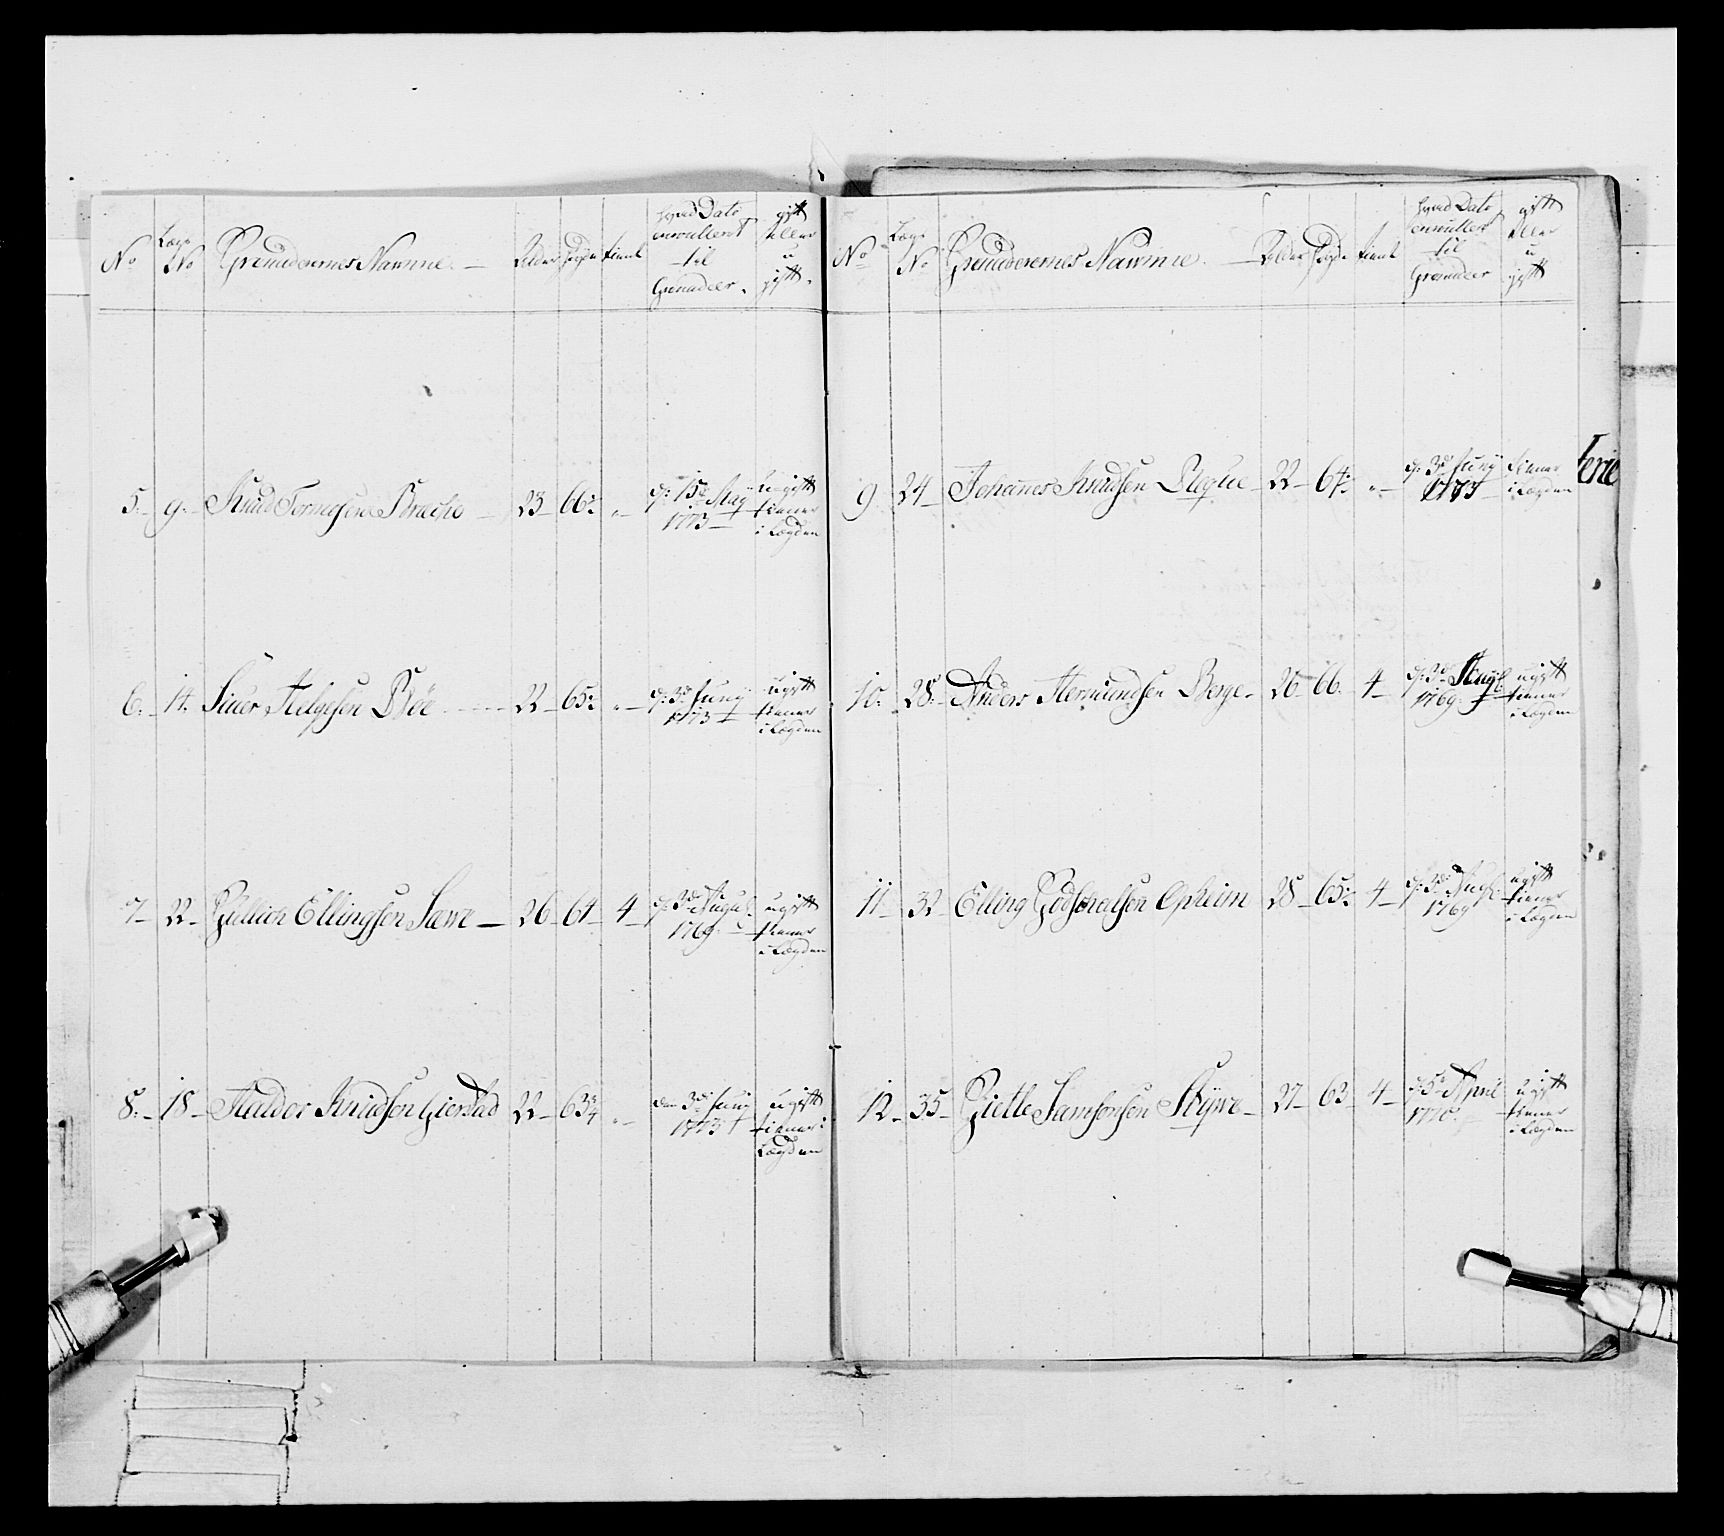 No
Lægs No
Grenaderernes Nawne.
Alder
Høyde
tient
hvad Dato
enroulleret
til
Grenadeer.
gift
eller
u
gift.
5. 9. Knud Tormosen 23 66: „ d: 15de May 1773
ugift
tiener
i Lægden
6. 14. Siuer Helgesen Böe 22 65: „ d: 3de Juny 1773
ugift
tiener
i Lægden
7 22 Gullich Ellingsen Sæwe 26 64 4 d: 3de August 1769
ugift
tiener
i Lægden
8. 18 Haldor Knudsen Gierstad 22 63 3/4 „ den 3de Juny 1773
ugift
tiener i
Lægden
No
Lægs No
Grenaderernes Nawne.
Alder
Høyde
tient
hvad Dato
enroullert
til
Grenadeer
gift
eller
u
gift
9 24 Johannes Knudsen 22 64: „ d: 3de Juny 1773
tiener
i Lægden
10. 28. Anders Hermundsen Berge 26 66. 4 d: 3de Aug 1769.
ugift
tiener
i Lægden
11 32 Elling Godschalsen Opheim 28 65: 4 d: 3de Aug 1769
ugift
tiener
i Lægden
12 35 Gietle Samsonsen 27 63 4 April
ugift
tiener
i Lægden
terie